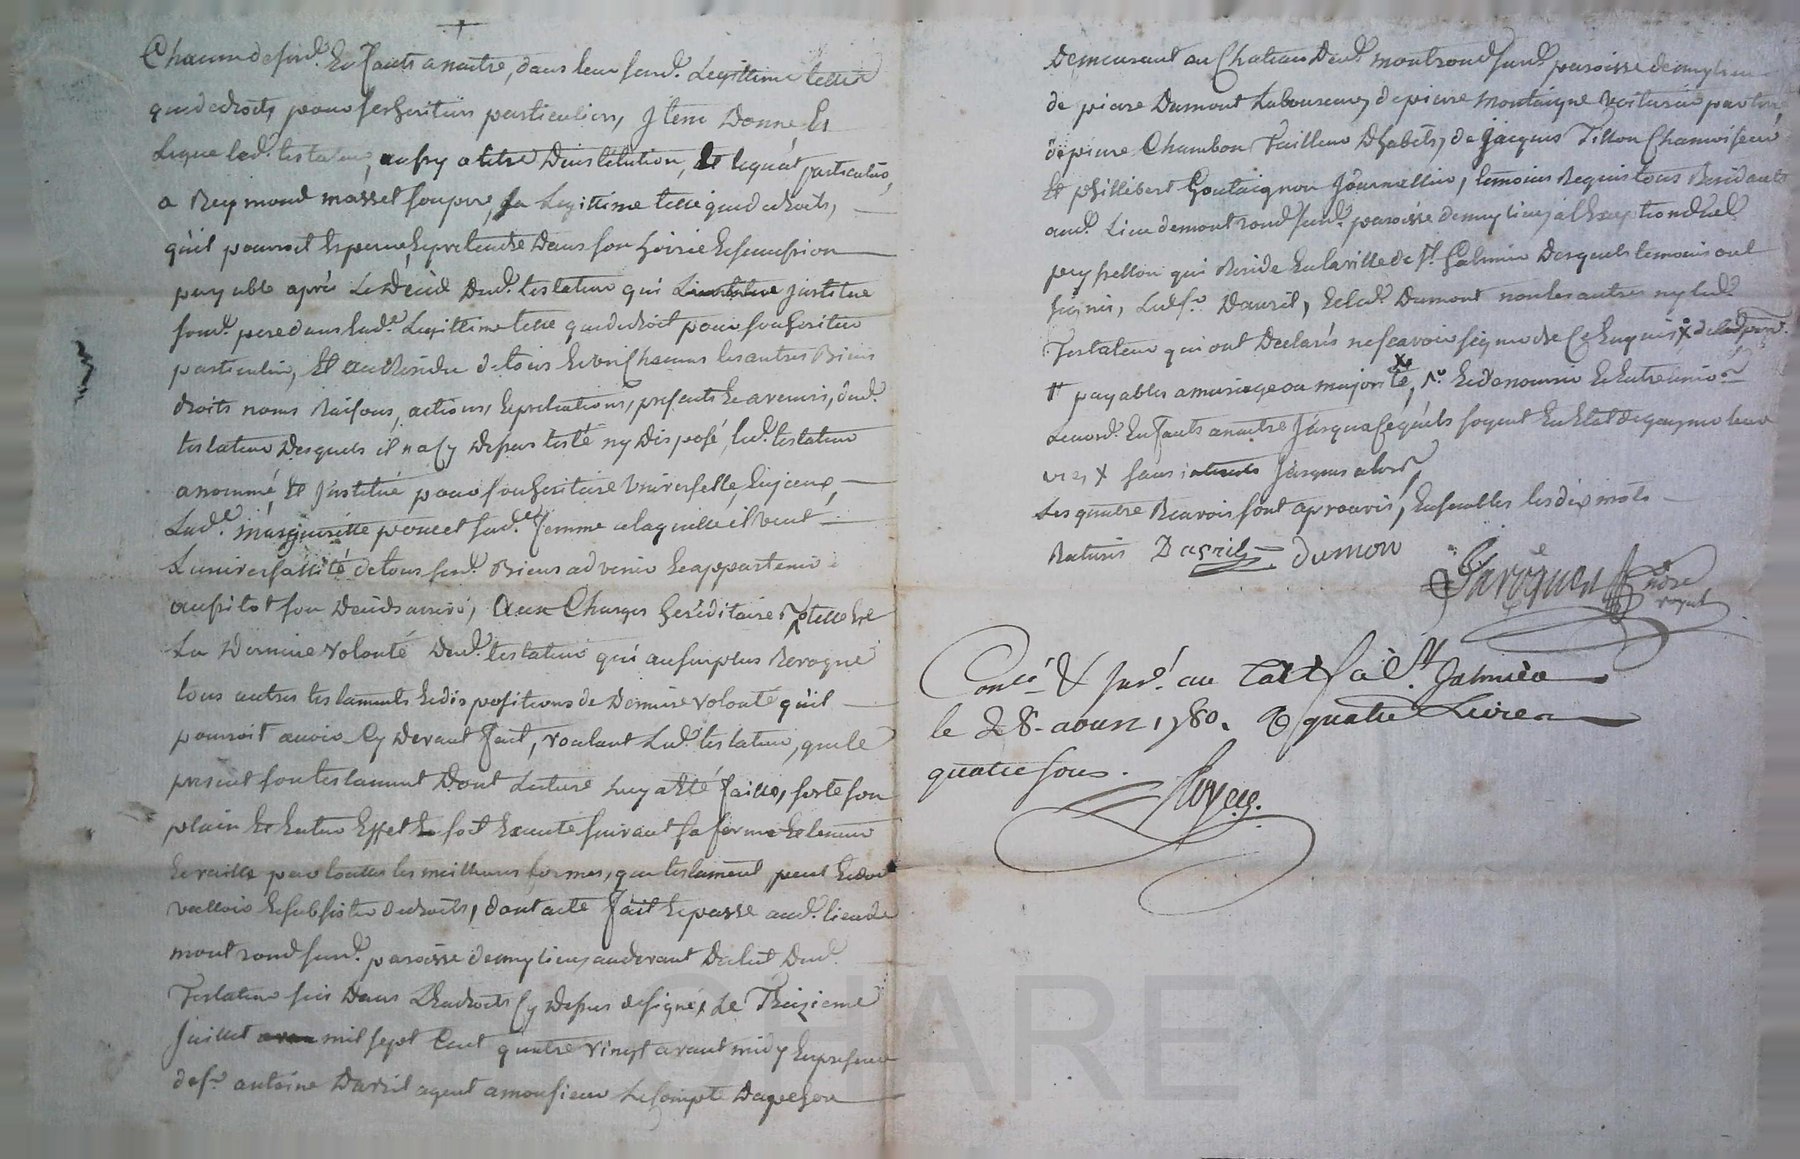 Chacun desd. Enfants a naitre, dans leur sud. Legittime telle
que de droits pour ses heritiers particuliers, Item Donne Et
Legue led. testateur, aussy a titre Dinstitution, Et legat particulier,
a Reymond masset son pere, sa Legittime telle que de droits,
quil pourroit Esperer, Et pretendre Dans son hoirie Et succession
payable aprés Le Déces Dud. testateur qui L'institue justitue
sond. pere dans lad. Legittime telle que de droit pour son heritier
particulier, Et au Residu de tous Et un Chacuns les autres Biens
droits noms Raisons, actions, Et pretentions, presents Et avenirs, dud.
testateur Desquels il n'a Cy Dessus testé ny Disposé, led. testateur
a nommé Et justitué pour son heritiere Universelle, Enjceux,
Lad. margueritte poncet sad. femme a laquelle il Veut
L'universallité de tous sesd. Biens advenir Et appartenir
aussitot son Decés arrivé, aux Charges hereditaires, telle Est
La Derniere volonté Dud. testateur qui au surplus Revoque
tous autres testaments Et dispositions de Derniere volonté quil
pourroit avoir Cy Devant fait, voulant Led. testateur, que le
present son testament Dont Lecture Luy a Eté faitte, sorte son
plain Et Entier Effet Et soit Executé suivant sa forme Et teneur
Et vaille par touttes les meilleures formes, que testament peut Et doit
valloir Et subsister de droits, dont acte fait Et passé aud. lieu de
montrond susd. paroisse de mylieu au devant De Lut Dud.
Testateur sis Dans L'Endroits Cy Dessus designé, Le Treizieme
juillet mil sept Cent quatre vingt avant midy En presence
de sr. antoine Davril agent a monsieur Le Compte Dapchon
Demeurant au Chateau Dud. montrond susd. paroisse de mylieu
de pierre Dumont Laboureur, de pierre Montaigne Voiturier par terre
de pierre Chambon Tailleur D'habits, de jacques Tillon Chanvisseur
Et phillibert Goutaignon Journallier, temoins Requis tous Residants
aud. Lieu de montrond susd. paroisse de mylieu, a l'Exception dud.
peyssellon qui Reside En la ville de St. Galmier Desquels temoins ont
signé, Led. sr. Davril, Et led. Dumont non les autres ny led.
Testateur qui ont Declarés ne scavoir signer de Ce Enquis x
payables a mariage ou majorité, Et de nourrir Et Entretenir
Leursd. Enfants a naitre jusqua Ce quils soyent En Etat de gagner leur
vie, x sans interets jusques alors,
Les quatre Renvois sont aprouvés, Ensembles les dix mots
Raturés Davril dumon
Javogues
nore
royal
Conté. & Inse. au tarif à St. Galmier
le 28. aoust 1780. R quatre Livres
quatre sous.